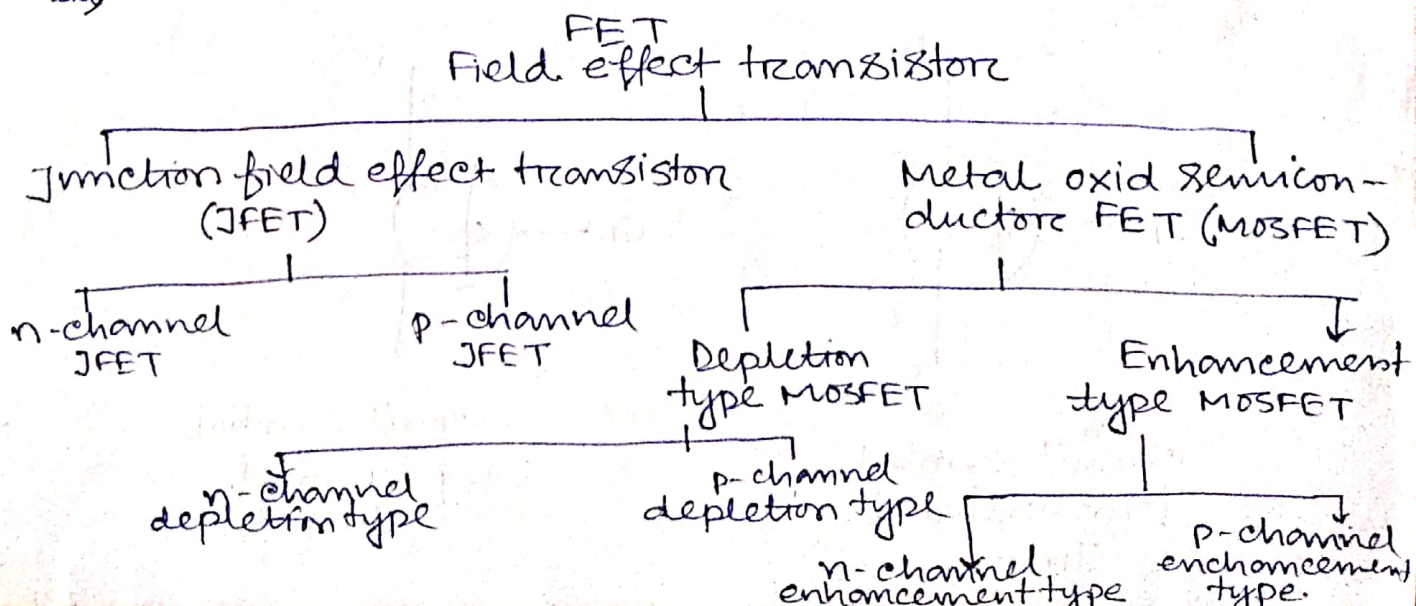 FET
Field effect transistor
Junction field effect transistor
(JFET)
Metal oxid semicon-
ductore FET (MOSFET)
n-channel
JFET
p-channel
JFET
Depletion
type MOSFET
Enhancement
type MOSFET
n-channel
depletion type
p-channel
depletion type
n-channel
enhancement type
p-channel
enchancement
type.